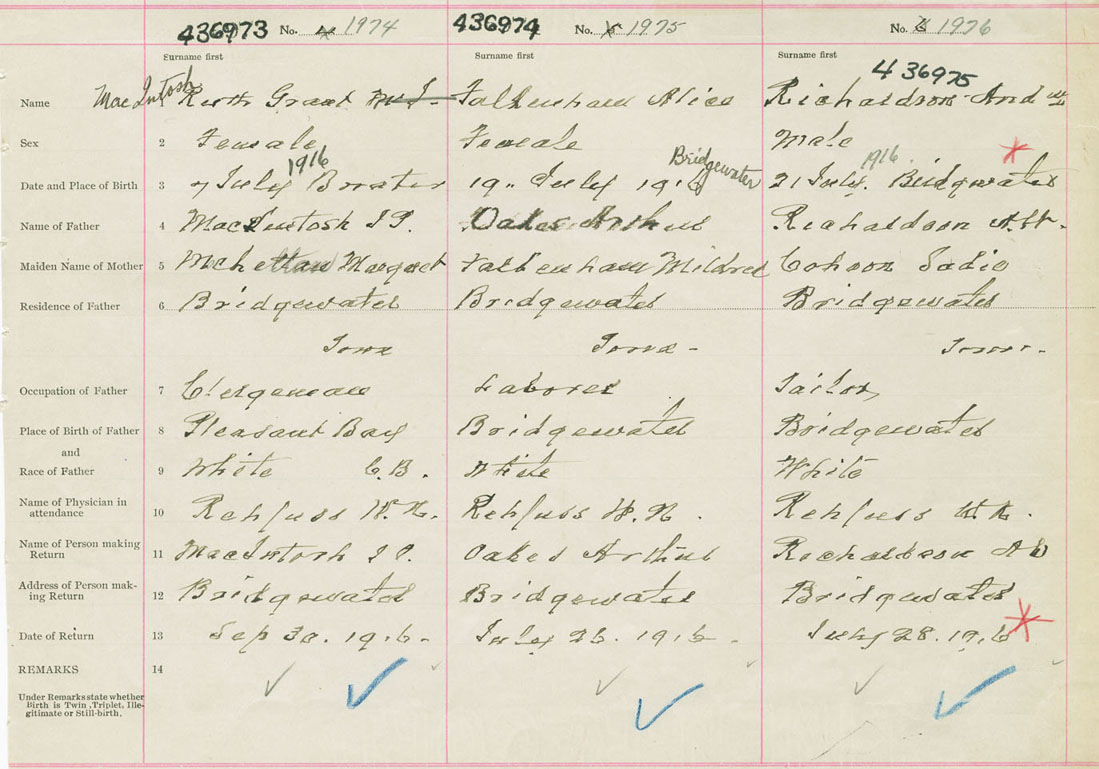 436973 No. 1974 436974 No. 1975 No. 1976
Surname first Surname first Surname first
436975
Name MacIntosh Ruth Grant Falkenham Alice Richardson And
Sex 2 Female Female Male
1916 Bridgewater 1916
Date and Place of Birth 3 7 July 19" July 1916 21 July. Bridgewater
Name of Father 4 MacIntosh J P. Oakes Arthur Richardson
Maiden Name of Mother 5 Margaret Falkenham Mildred Cohoon Sadie
Residence of Father 6 Bridgewater Bridgewater Bridgewater
Town Town - Town -
Occupation of Father 7 Clergeman Laborer Tailor
Place of Birth of Father 8 Pleasant Bay Bridgewater Bridgewater
and
Race of Father 9 White C.B. White White
Name of Physician in
attendance 10 Rehfuss W. N. Rehfuss W. N. Rehfuss W. N.
Name of Person making
Return 11 MacIntosh J P. Oakes Arthur Richardson
Address of Person mak-
ing Return 12 Bridgewater Bridgewater Bridgewater
Date of Return 13 Sep 30. 1916. July 26. 1916 July 28. 1916
REMARKS 14
Under Remarks state whether
Birth is Twin, Triplet, Ille-
gitimate or Still-birth.